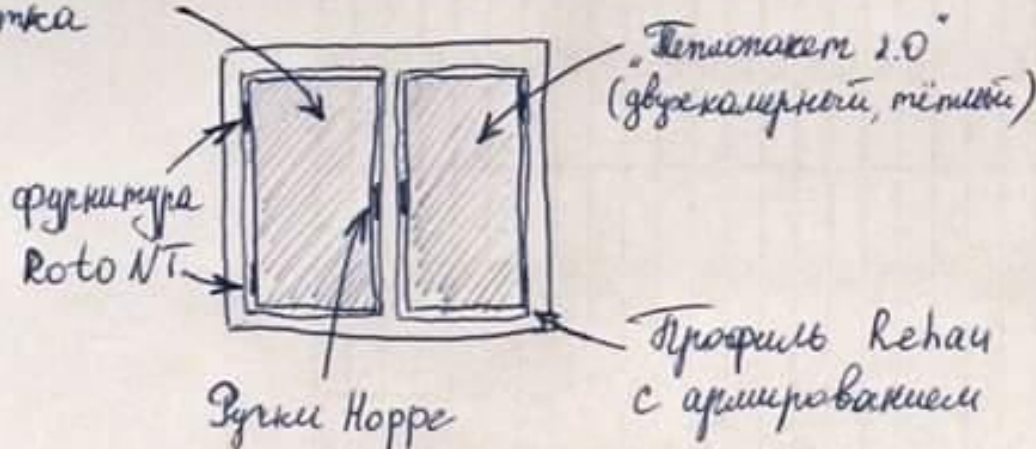 „Теплопакет 2.0“
(двухкамерный, тёплый)
фурнитура
Roto NT
Ручки Hoppe
Профиль Rehau
с армированием